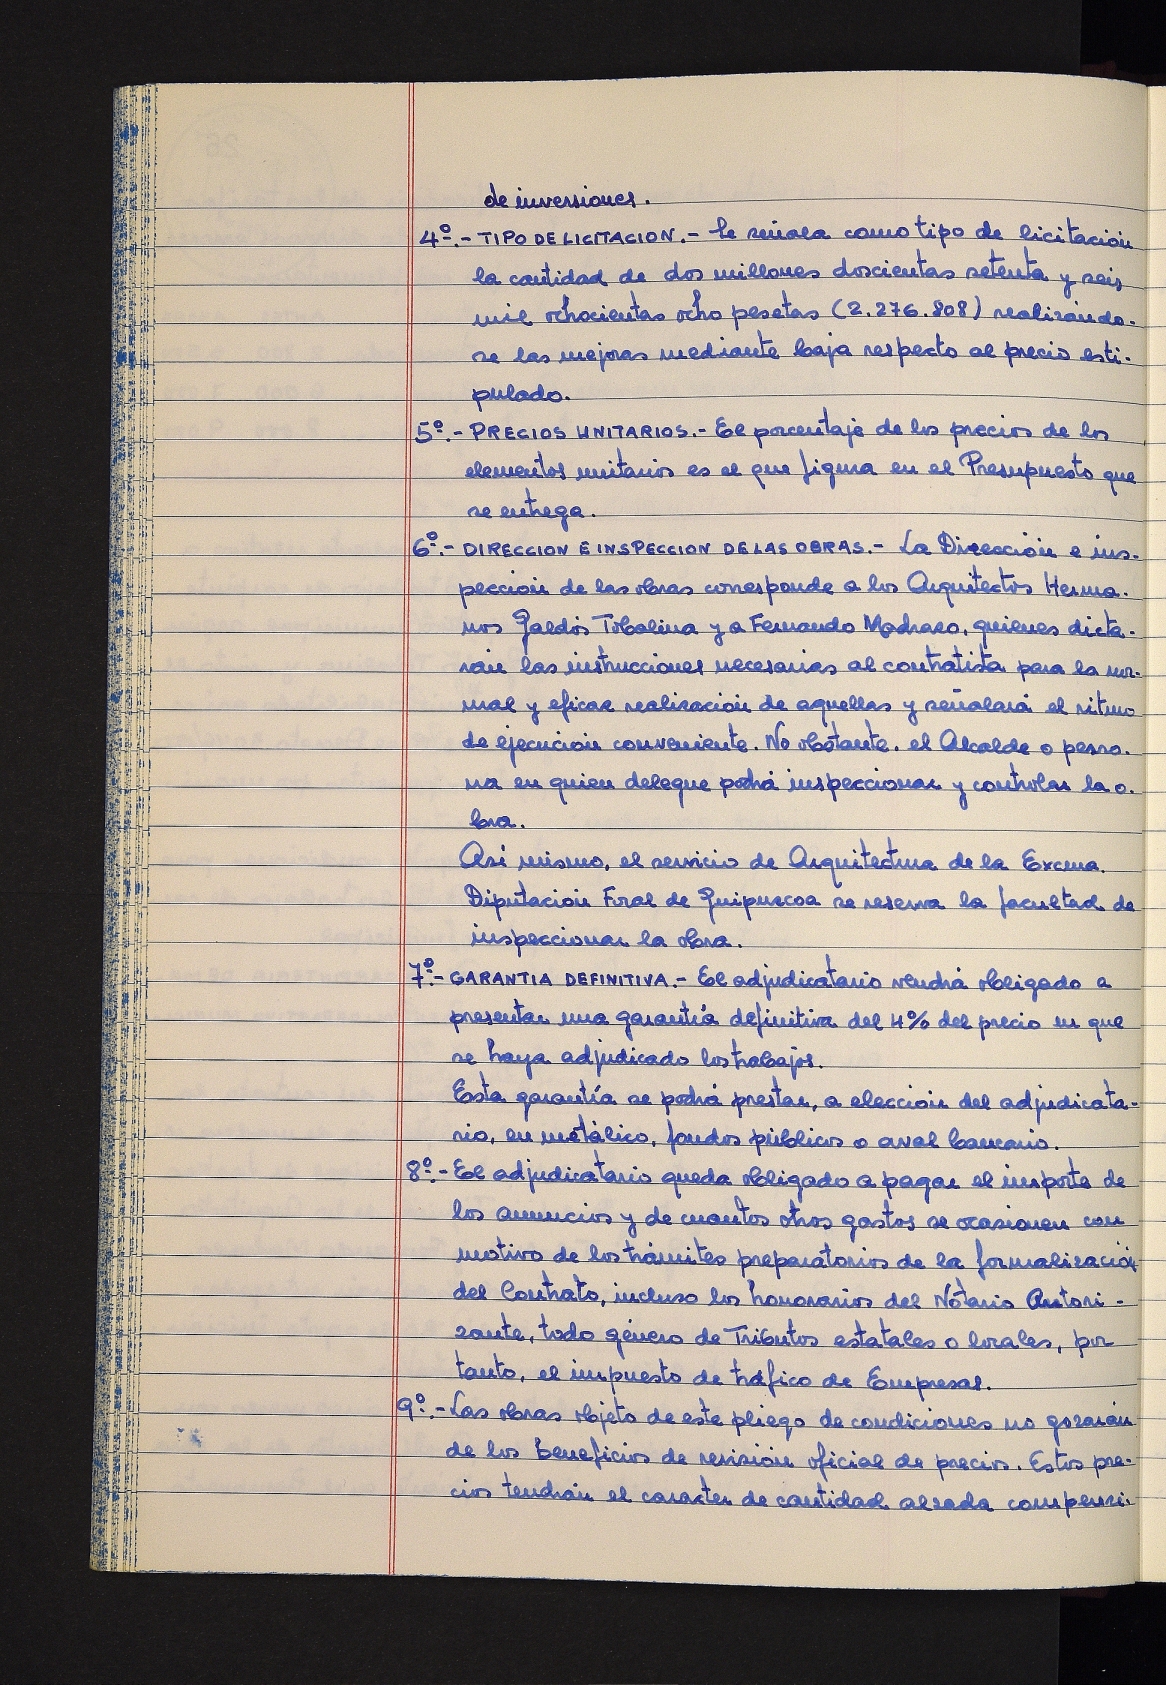 de inversiones.
4º.- TIPO DE LICITACION.- Se señala como tipo de licitación
la cantidad de dos millones doscientas setenta y seis
mil ochocientas ocho pesetas (2.276.808) realizándo-
se las mejoras mediante baja respecto al precio esti-
pulado.
5º.- PRECIOS UNITARIOS.- El porcentaje de los precios de los
elementos unitarios es el que figura en el Presupuesto que
se entrega.
6º.- DIRECCION E INSPECCION DE LAS OBRAS.- La Dirección e ins-
pección de las obras corresponde a los Arquitectos Herma-
nos Galdós Tobalina y a Fernando Madrazo, quienes dicta-
rán las instrucciones necesarias al contratista para la nor-
mal y eficaz realización de aquellas y señalará el ritmo
de ejecución conveniente. No obstante, el Alcalde o perso-
na en quien delegue podrá inspeccionar y controlar la o-
bra.
Así mismo, el servicio de Arquitectura de la Excma.
Diputación Foral de Guipuzcoa se reserva la facultad de
inspeccionar la obra.
7º.- GARANTIA DEFINITIVA.- El adjudicatario vendrá obligado a
presentar una garantía definitiva del 4% del precio en que
se haya adjudicado los trabajos.
Esta garantía se podrá prestar, a elección del adjudicata-
rio, en metálico, fondos públicos o aval bancario.
8º.- El adjudicatario queda obligado a pagar el importe de
los anuncios y de cuantos otros gastos se ocasionen con
motivo de los trámites preparatorios de la formalización
del Contrato, incluso los honorarios del Notario Autori-
zante, todo género de Tributos estatales o locales, por
tanto, el impuesto de tráfico de Empresas.
9º.- Las obras objeto de este pliego de condiciones no gozarán
de los beneficios de revisión oficial de precios. Estos pre-
cios tendrán el caracter de cantidad alzada compensi-